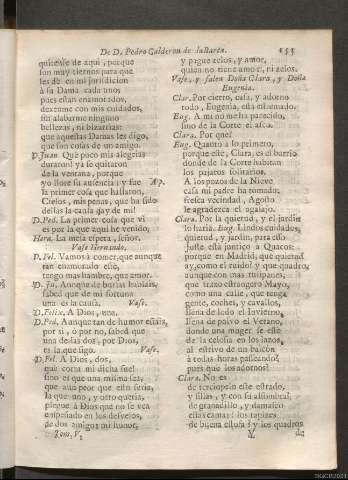 De D. Pedro Calderon de la Barca. 455
quitense de aqui, porque
son muy tiernos para que
les dè en mi jurisdicion
à su Dama cada uno:
pues estàn enamorados,
dexenme con mis cuidados,
sin alabarme ninguno
bellezas, ni bizarrias:
que aquestas Damas les digo,
que son cosas de un amigo.
D. Juan. Què poco mis alegrias
duraron! ya se quitaron
de la ventana, porque
yo llore su ausencia, y fue Ap.
la primer cosa que hallaron,
Cielos, mis penas, que ha sido
de las la causa, ay de mi!
D. Ped. La primer cosa que vi
es por la que aqui he venido.
Hern. La mesa espera, señor.
Vase Hernando.
D. Fel. Vamos à comer, que aunque
tan enamorado estè,
tengo mas hambre, que amor.
D. Ju. Aunque de burlas hablais,
sabed que de mi fortuna
una es la causa. Vase.
D. Felix. A Dios, una.
D. Ped. Aunque tan de humor estais,
por si, ò por no, sabed que
una de las dos, por Dios,
es la que sigo. Vase.
D. Fel. A Dios, dos,
què corta mi dicha fue!
sino es que una misma sea,
que aun peor que esto seria,
la que uno, y otro queria,
plegue à Dios que no se vea
empeñado en los desvelos,
de dos amigos mi humor,
Tom. V.
y pague zelos, y amor,
quien no tiene amor, ni zelos.
Vase, y salen Doña Clara, y Doña
Eugenia.
Clar. Por cierto, casa, y adorno
todo, Eugenia, està estremado.
Eug. A mi no me ha parecido,
sino de la Corte el asco.
Clara. Por què?
Eug. Quanto à lo primero,
porque este, Clara, es el barrio
donde de la Corte habitan
los pajaros solitarios.
A los pozos de la Nieve
casa mi padre ha tomado,
fresca vecindad, Agosto
le agradezca el agasajo.
Clara. Por la quietud, y el jardin
lo haria. Eug. Lindos cuidados,
quietud, y jardin, para esso
Juste està junto à Quacos:
porque en Madrid, què quietud
ay, como el ruido? y què quadro,
aunque con mas tulipanes,
que traxo estrangero Mayo,
como una calle, que tenga
gente, coches, y cavallos,
llena de lodo el Invierno,
llena de polvo el Verano,
donde una muger se estè
de la celosia en los lazos,
al estrivo de un balcon
à todas horas paseando?
pues què los adornos!
Clara. No es
de terciopelo este estrado,
y sillas, y con su alfombra,
de granadillo, y damasco
estas camas? los tapices
de buena estofa? y los quadros
V de